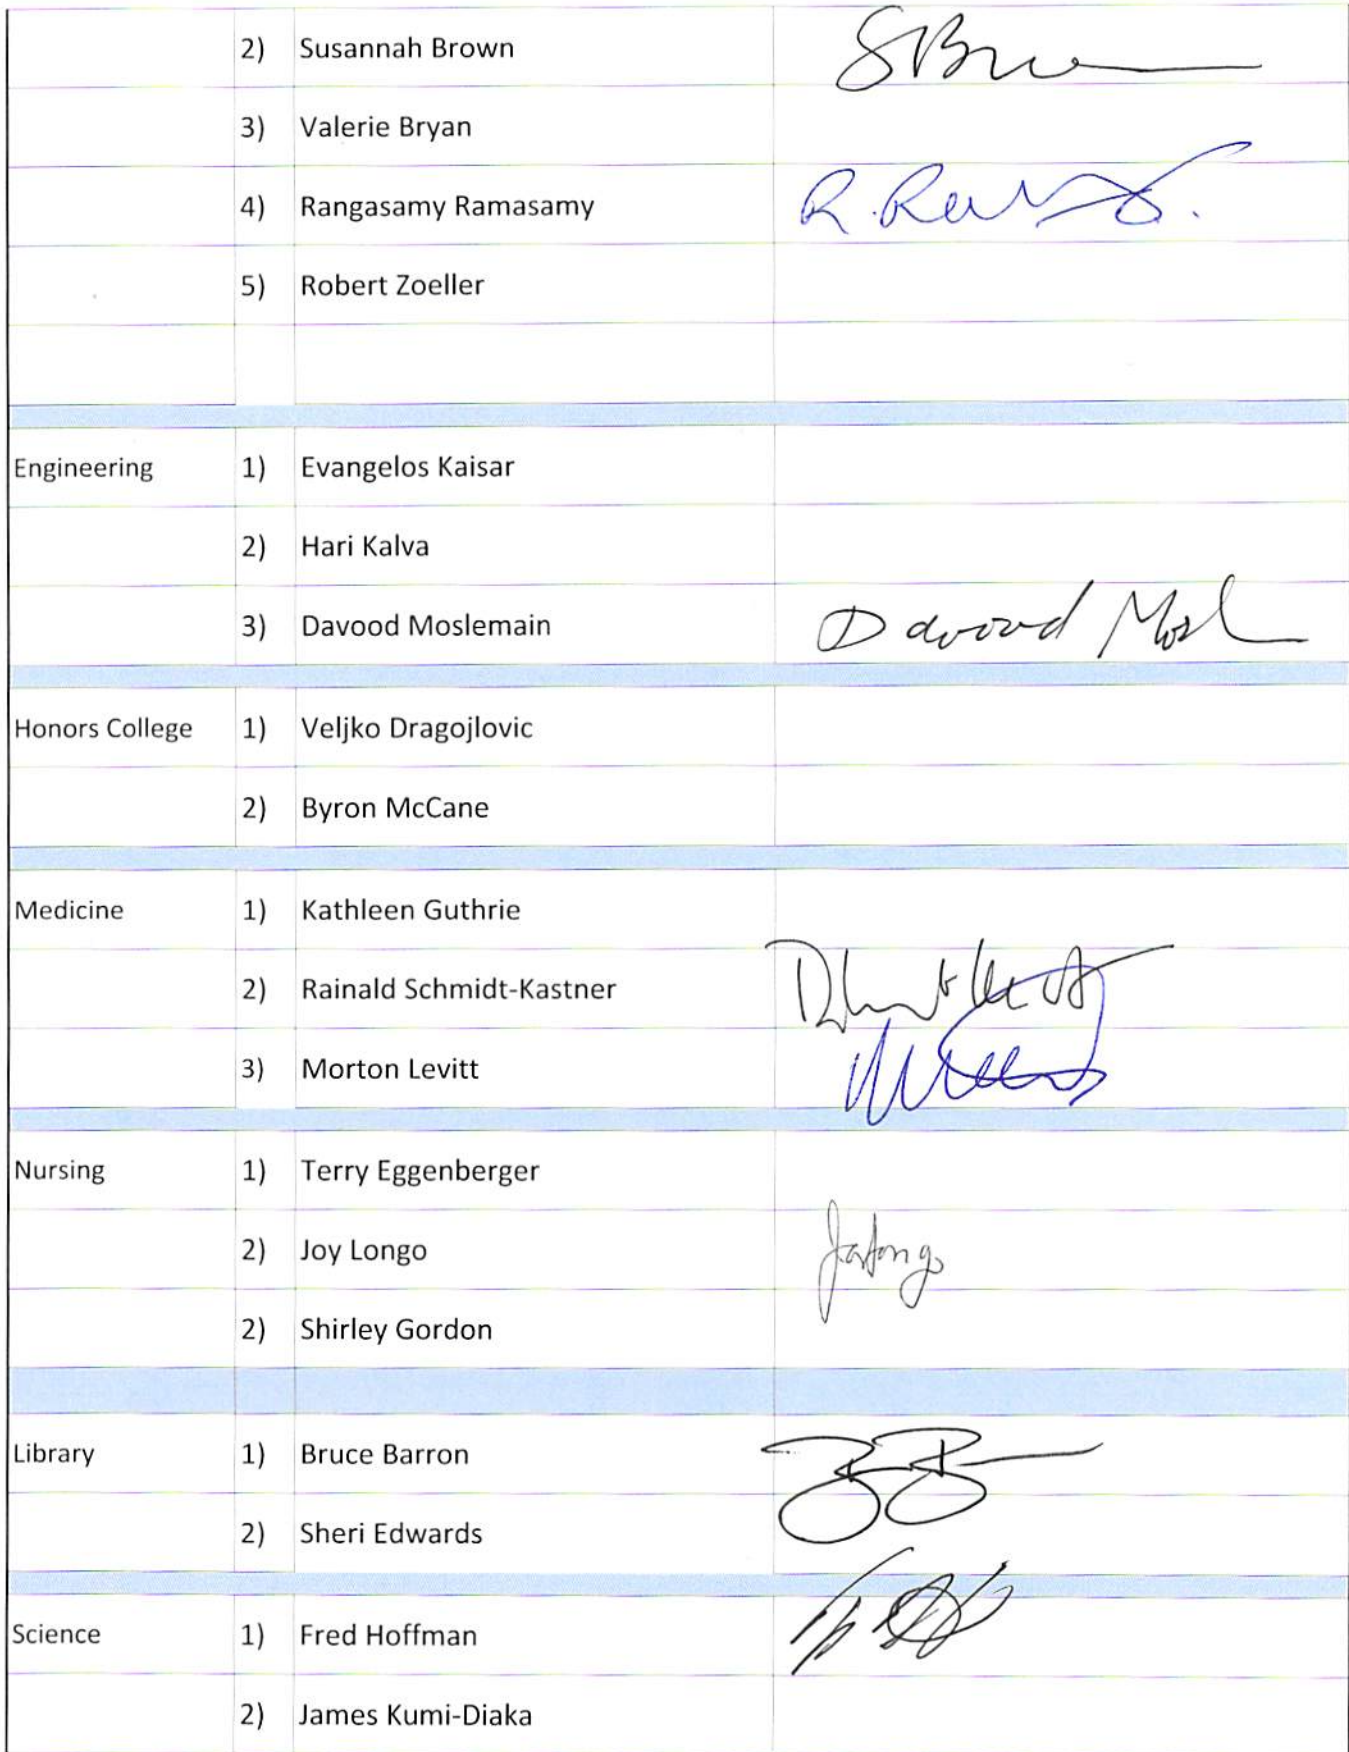 2) Susannah Brown SBrown
3) Valerie Bryan
4) Rangasamy Ramasamy R. 
5) Robert Zoeller
Engineering 1) Evangelos Kaisar
2) Hari Kalva
3) Davood Moslemain Davood Mosl
Honors College 1) Veljko Dragojlovic
2) Byron McCane
Medicine 1) Kathleen Guthrie
2) Rainald Schmidt-Kastner
3) Morton Levitt
Nursing 1) Terry Eggenberger
2) Joy Longo
2) Shirley Gordon
Library 1) Bruce Barron
2) Sheri Edwards
Science 1) Fred Hoffman
2) James Kumi-Diaka